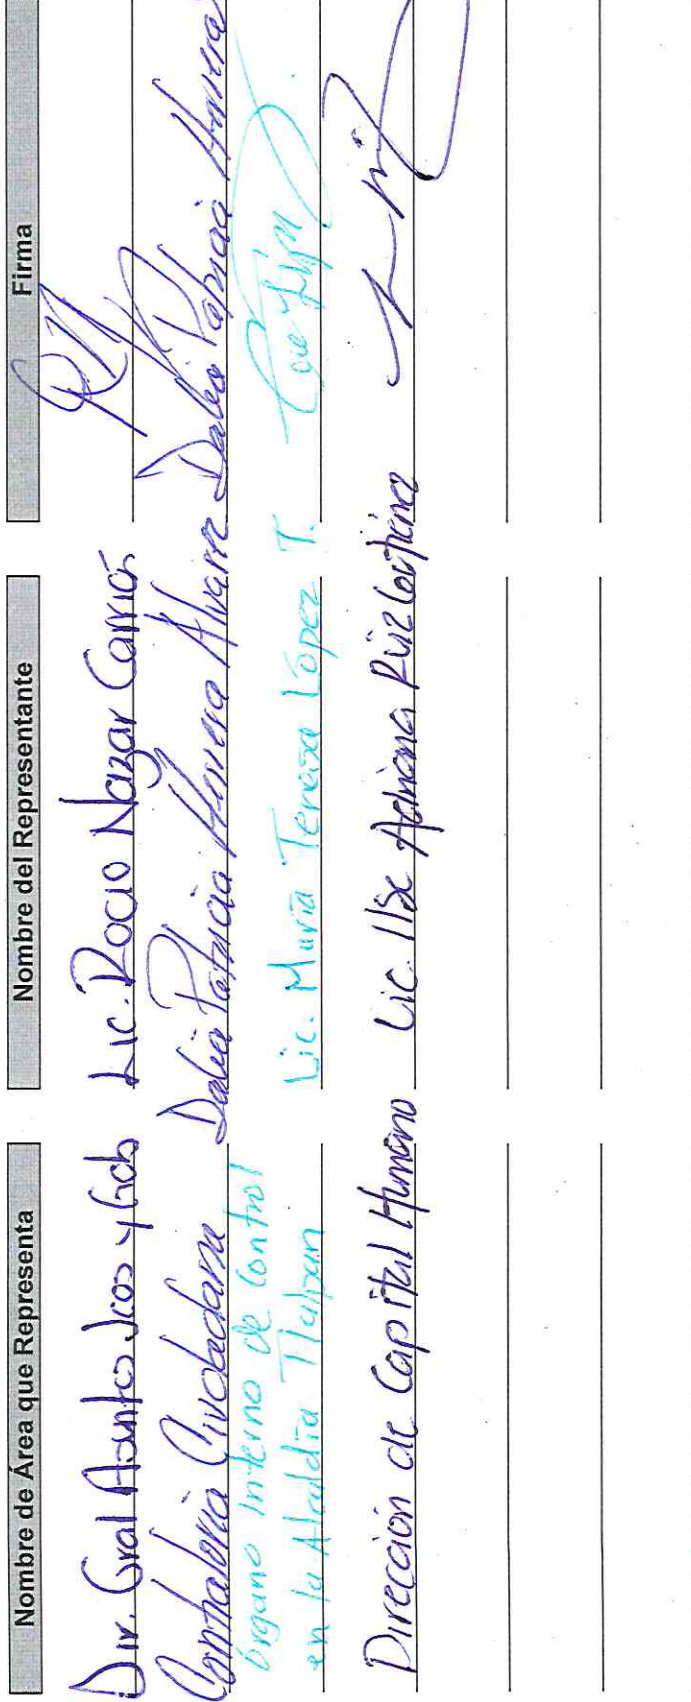 Nombre de Área que Representa Nombre del Representante Firma
Dir. Gral Asuntos Jcos y Gob Lic. Rocio Nazar
Contraloria Ciudadana Dalia Patricia Herrera Alvarez Dalia Patricia Herrera
Órgano Interno de Control
en la Alcaldía Tlalpan Lic. María Teresa López T.
Dirección de Capital Humano Lic. Ilse Adriana Ruiz